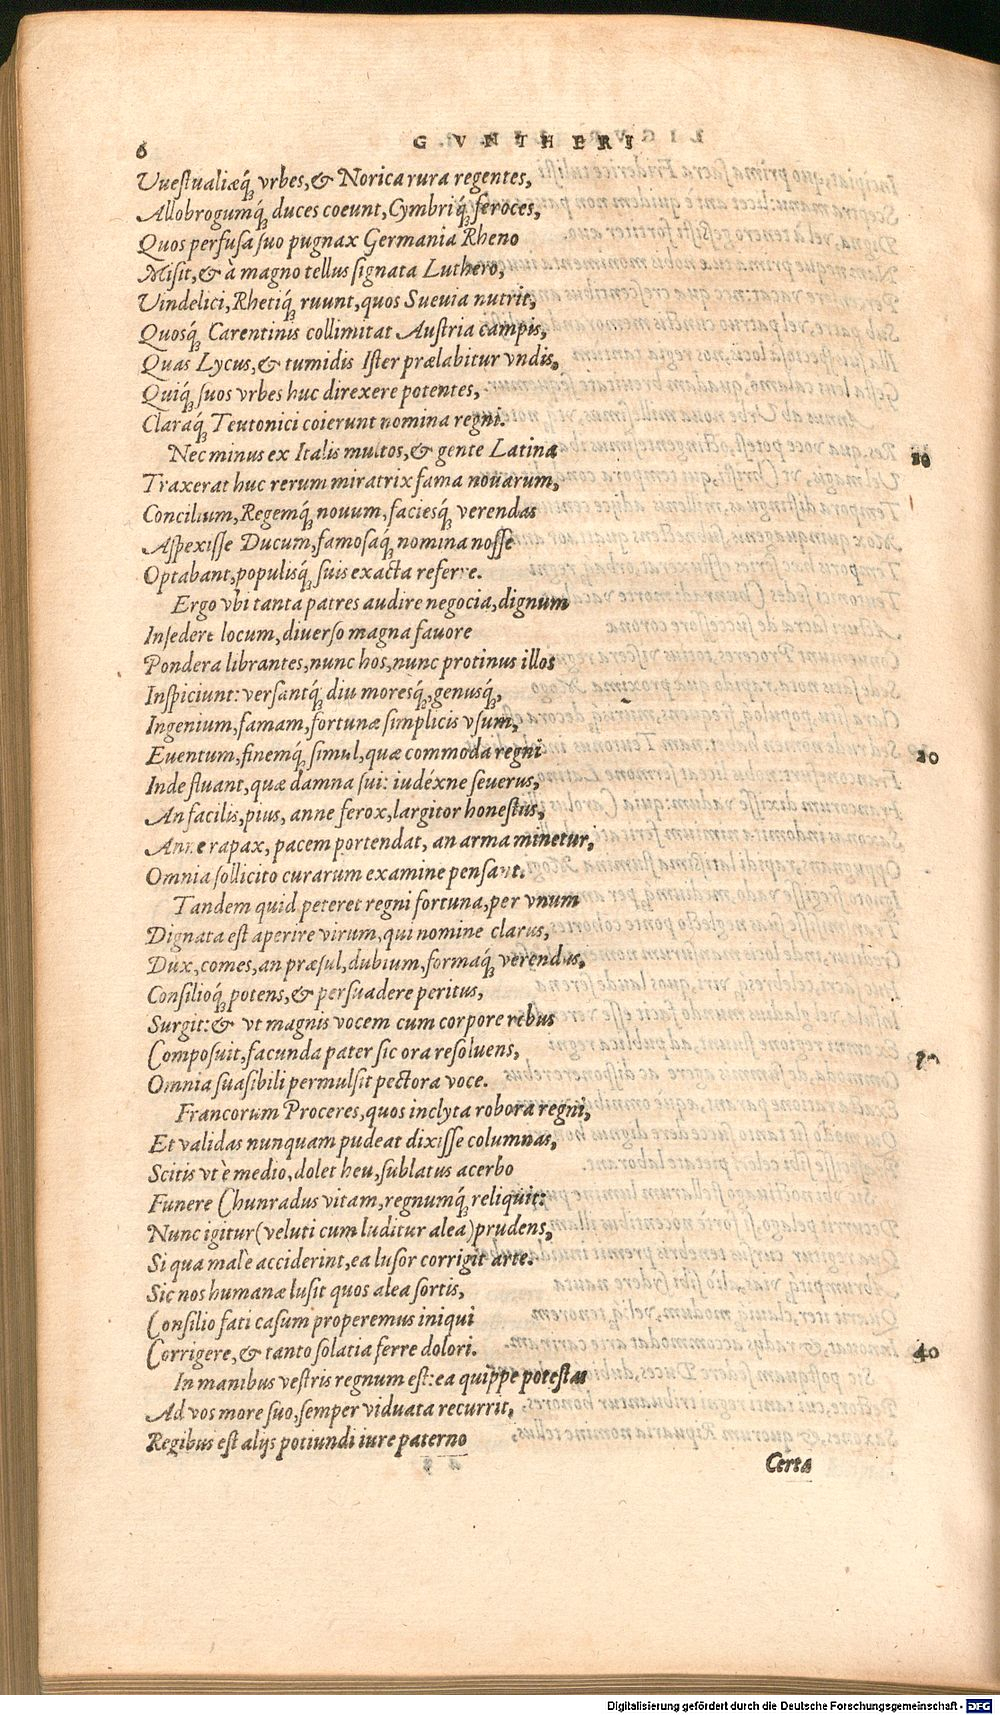 6
GVNTHERI
Vuestualiæq́; vrbes, & Norica rura regentes,
Allobrogumq́; duces coeunt, Cymbriq́; feroces,
Quos perfusa suo pugnax Germania Rheno
Misit, & à magno tellus signata Luthero,
Vindelici, Rhetiq́; ruunt, quos Sueuia nutrit,
Quosq́; Carentinis collimitat Austria campis,
Quas Lycus, & tumidis Ister prælabitur vndis.
Quiq́; suos vrbes huc direxere potentes,
Claraq́; Teutonici coierunt nomina regni.
Nec minus ex Italis multos, & gente Latina
10
Traxerat huc rerum miratrix fama nouarum,
Concilium, Regemq́; nouum, faciesq́; verendas
Aspexisse Ducum, famosaq́; nomina nosse
Optabant, populisq́; suis exacta referre.
Ergo vbi tanta patres audire negocia, dignum
Insedere locum, diuerso magna fauore
Pondera librantes, nunc hos, nunc protinus illos
Inspiciunt: versantq́; diu moresq́;, genusq́;,
Ingenium, famam, fortunæ simplicis vsum,
Euentum, finemq́; simul, quæ commoda regni
20
Inde fluant, quæ damna sui: iudéxne seuerus,
An facilis, pius, anne ferox, largitor honestus,
Anne rapax, pacem portendat, an arma minetur,
Omnia sollicito curarum examine pensant.
Tandem quid peteret regni fortuna, per vnum
Dignata est aperire virum, qui nomine clarus,
Dux, comes, an præsul, dubium, formaq́; verendus,
Consilioq́; potens, & persuadere peritus,
Surgit: & vt magnis vocem cum corpore rebus
Composuit, facunda pater sic ora resoluens,
30
Omnia suasibili permulsit pectora voce.
Francorum Proceres, quos inclyta robora regni,
Et validas nunquam pudeat dixisse columnas,
Scitis vt è medio, dolet heu, sublatus acerbo
Funere Chunradus vitam, regnumq́; reliquit:
Nunc igitur (veluti cum luditur alea) prudens,
Si qua malè acciderint, ea lusor corrigit arte.
Sic nos humanæ lusit quos alea sortis,
Consilio fati casum properemus iniqui
Corrigere, & tanto solatia ferre dolori.
40
In manibus vestris regnum est: ea quippe potestas
Ad vos more suo, semper viduata recurrit,
Regibus est alijs potiundi iure paterno
Certa
Digitalisierung gefördert durch die Deutsche Forschungsgemeinschaft - DFG